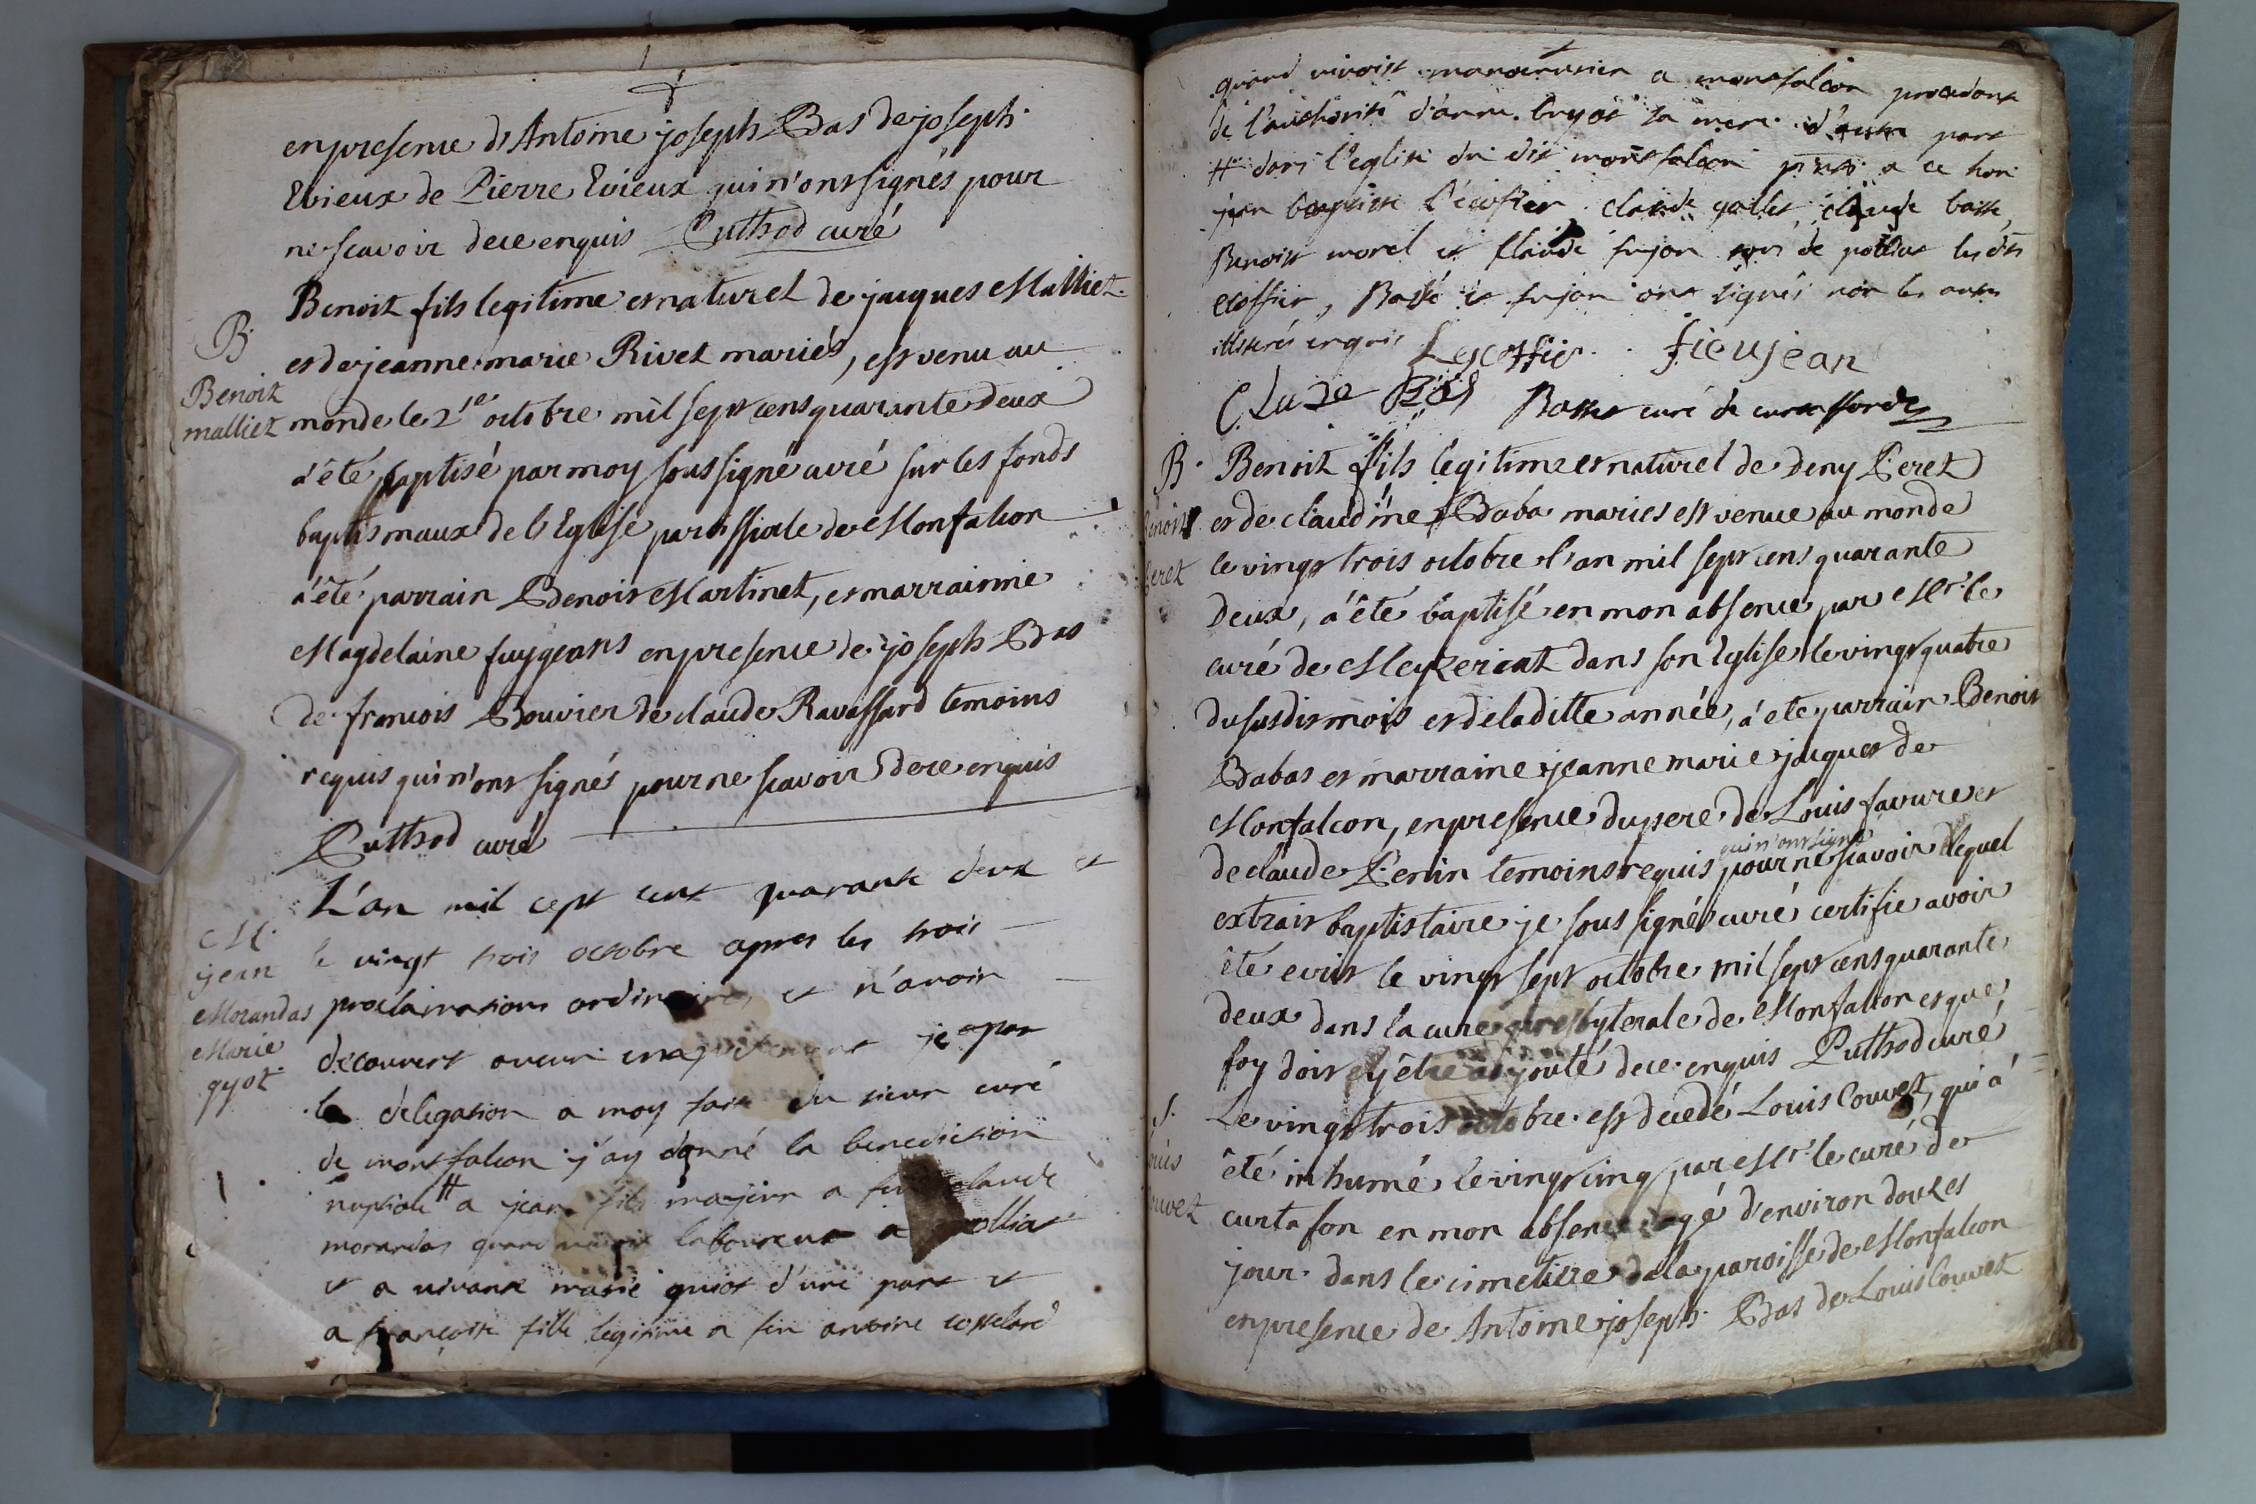 en presence d'Antoine joseph Bas de joseph
Evieux de Pierre Evieux qui n'ont signés pour
ne scavoir de ce enquis Puthod curé
B.
Benoit
malliet
Benoit fils legitime et naturel de jacques Malliet
et de jeanne marie Rivet mariés, est venu au
monde le 21er octobre mil sept cens quarante deux
a été baptisé par moy sous signé curé sur les fonds
baptismaux de l'Eglise paroissiale de Monfalcon
a été parrain Benoit Martinet, et marrainne
Magdelaine fuygeans en presence de joseph Bas
de francois Bouvier de claude Ravassard temoins
requis qui n'ont signés pour ne scavoir de ce enquis
Puthod curé
M.
jean
Morandas
Marie
gyot
L'an mil cept cent quarante deux et
le vingt trois octobre apres les trois
proclamations ordinaires et n'avoir
decouvert aucun je par
la delegation a moy faite du sieur curé
de montfalcon j'ay donné la benediction
nuptiale # a jean fils majeur a feu claude
morandas quand vivoit laboureur a polliat
et a vivante marie guiot d'une part et
a francoise fille legitime a feu antoine
quand vivoit manoeuvrier a montfalcon procedant
de l'authorité d'anne sa mere d'autre part
# dans l'eglise du dit montfalcon a ce
jean baptiste l'écoffier claude claude basse
Benoist morel et Claude fujon de polliat les dts
ecoffier, Basse et fujon ont signés non les autres
illiterés enquis Lescoffier fieujean
Clude Bas Basset curé de curtaffond
B.
Benoit
Peret
Benoit fils legitime et naturel de deny Peret
et de claudine Baba mariés est venue au monde
le vingt trois octobre l'an mil sept cens quarante
deux, a été baptisé en mon absence par Mr. le
curé de Mezeriat dans son Eglise le vingt quatre
du susdit mois et de la ditte année, a été parrain Benoit
Babas et marraine jeanne marie jaques de
Monfalcon, en presence du pere de Louis favure et
de claude Perrin temoins requis qui n'ont signé pour ne scavoir dequel
extrait baptistaire je sous signé curé certifie avoir
été ecrit le vingt sept octobre mil sept cens quarante
deux dans la cure presbyterale de Monfalcon et que
foy doit y être adjouté de ce enquis Puthod curé
S.
Louis
Couvet
Le vingt trois octobre est decedé Louis Couvet, qui a
été inhumé le vingt cinq par Mr. le curé de
curtafon en mon absence agé d'environ douzes
jour dans le cimetiere de la paroisse de Monfalcon
en presence de Antoine joseph Bas de Louis Couvet